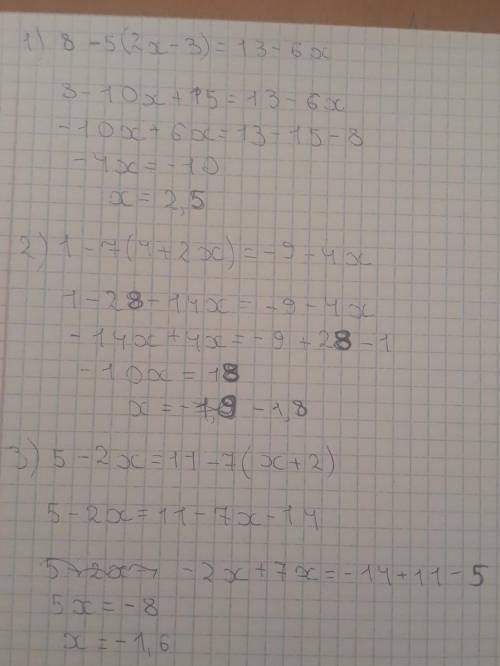 1) 8 - 5(2x - 3) = 13 - 6x
8 - 10x + 15 = 13 - 6x
-10x + 6x = 13 - 15 - 8
-4x = -10
x = 2,5
2) 1 - 7(4 + 2x) = -9 - 4x
1 - 28 - 14x = -9 - 4x
-14x + 4x = -9 + 28 - 1
-10x = 18
x = -1,9 -1,8
3) 5 - 2x = 11 - 7(x + 2)
5 - 2x = 11 - 7x - 14
5 - 2x -2x + 7x = -14 + 11 - 5
5x = -8
x = -1,6